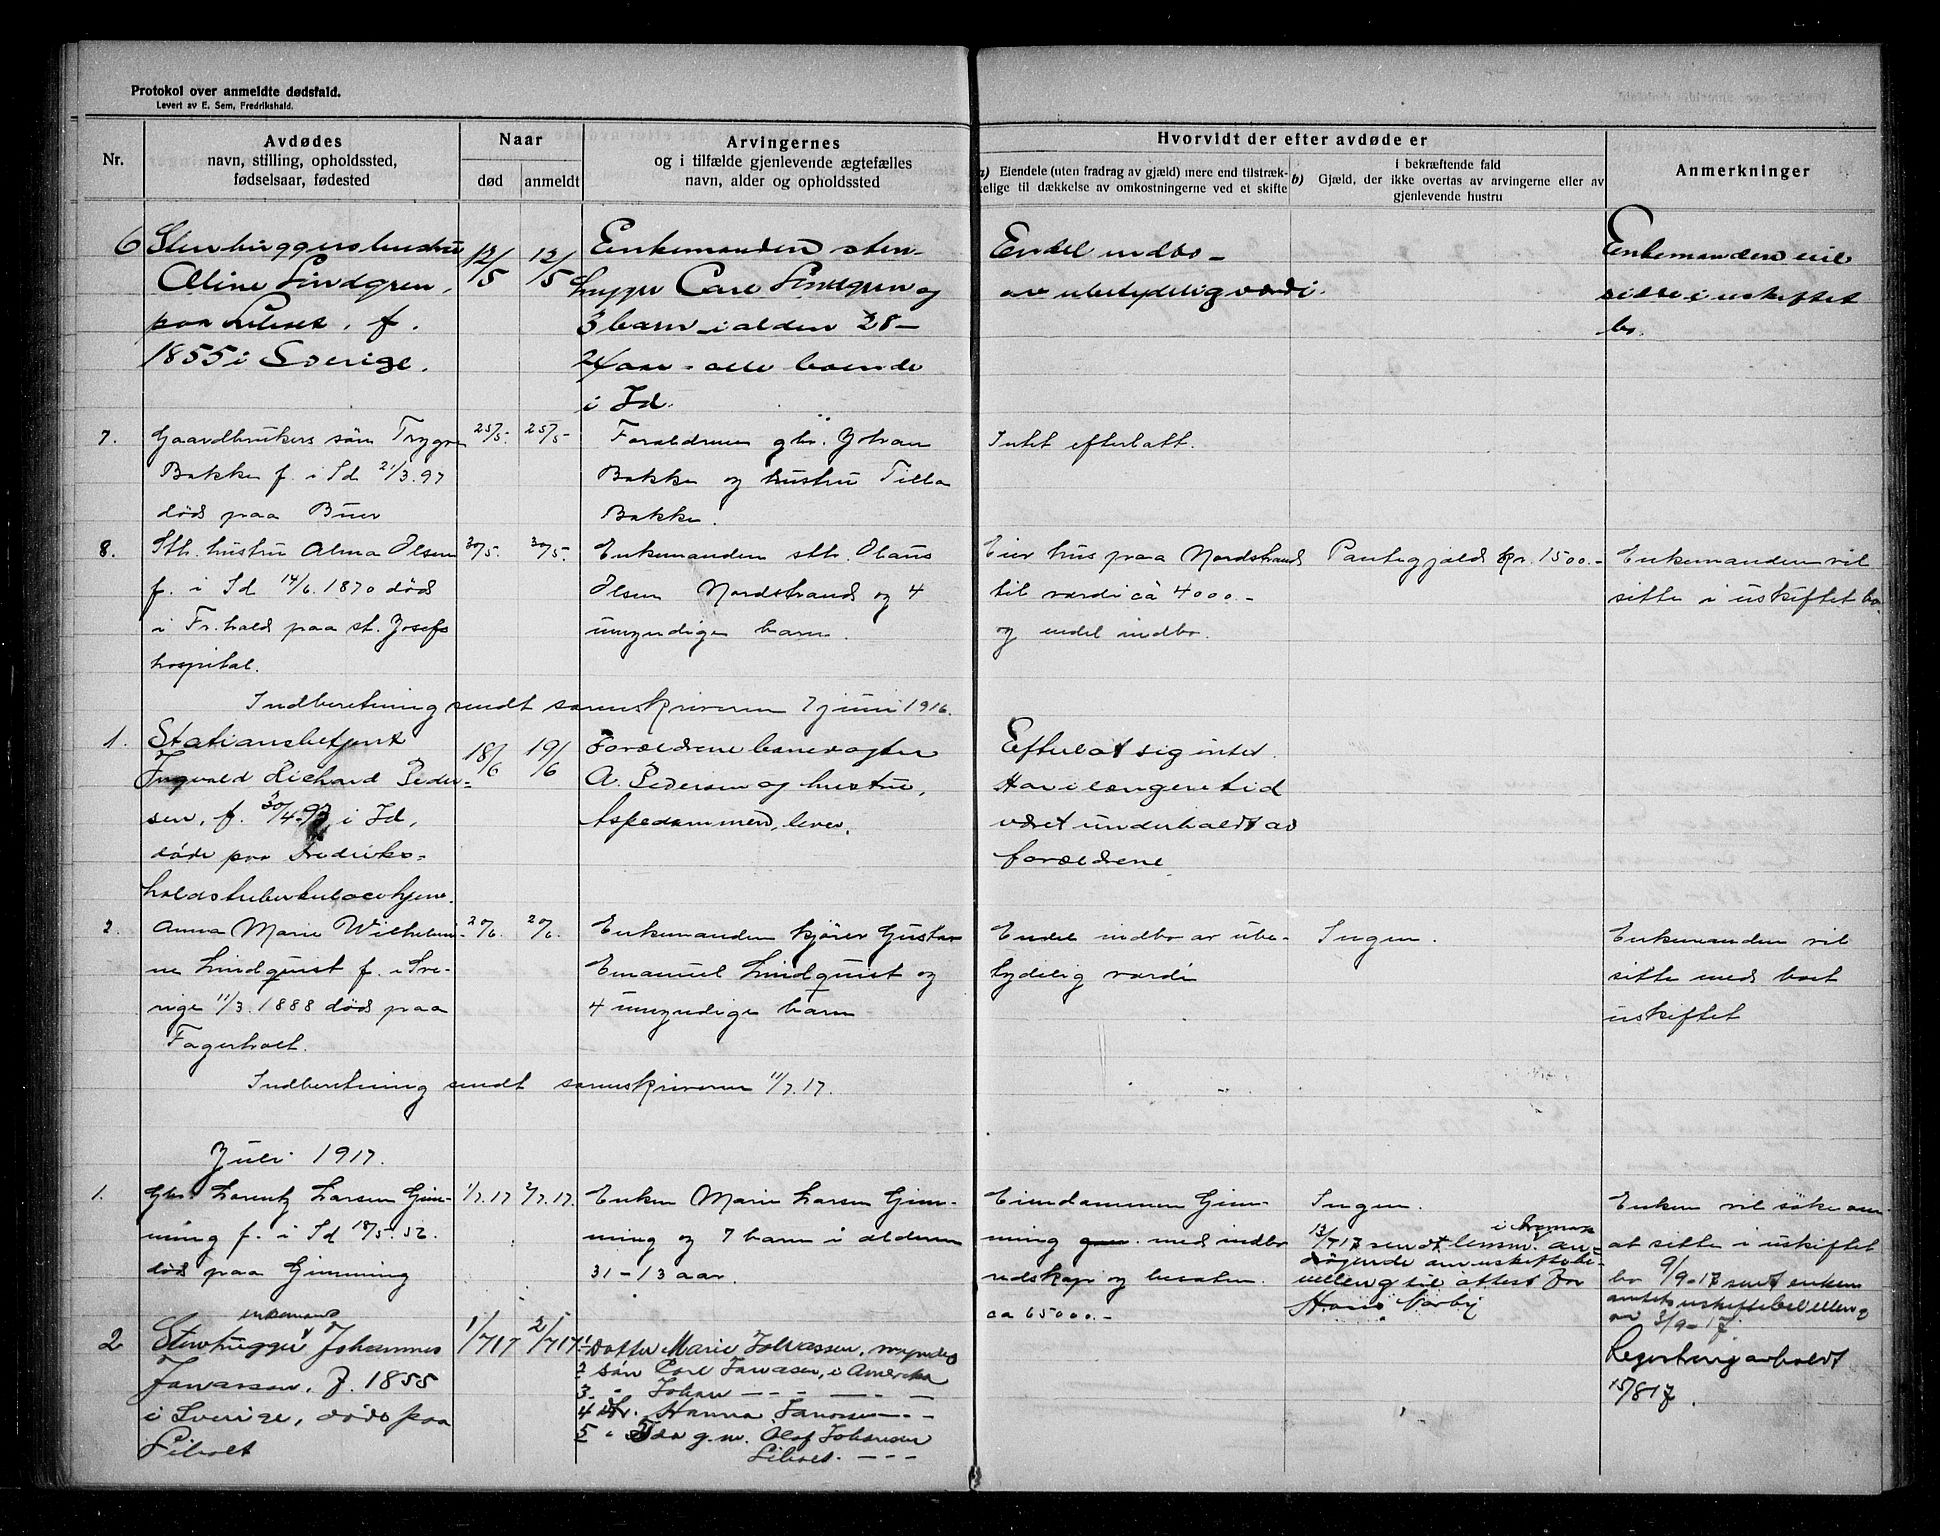 Protokol over anmeldte dødsfald.
Levert av E. Sem, Fredrikshald.
Nr.
Avdødes
navn, stilling, opholdssted,
fødselsaar, fødested
Naar
død
anmeldt
Arvingernes
og i tilfælde gjenlevende ægtefælles
navn, alder og opholdssted
Hvorvidt der efter avdøde er
a) Eiendele (uten fradrag av gjæld) mere end tilstræk-
kelige til dækkelse av omkostningerne ved et skifte
b)
i bekræftende fald
Gjæld, der ikke overtas av arvingerne eller av
gjenlevende hustru
Anmerkninger
6
Stenhuggershustru
Oline Lindgren,
paa Liholt, f.
1855 i Sverige.
12/5
12/5
Enkemanden sten-
hugger Carl Lindgren og
3 barn i alderen 28-
24 aar - alle boende
i Id.
Endel indbo
av ubetydelig værdi.
Enkemanden vil
sitte i uskiftet
bo.
7.
Gaardbrukers søn Trygve
Bakke f. i Id 21/3.97
død paa Buer
25/5.
25/5
Forældrene gbr. Johan
Bakke og hustru Tilla
Bakke.
Intet efterlatt.
8.
Sth. hustru Alma Olsen
f. i Id 14/6.1870 død
i Fr.hald paa st. Josefs
hospital.
30/5.
30/5.
Enkemanden sth. Olaus
Olsen Nordstrand og 4
umyndige barn.
Eier hus paa Nordstrand
til værdi cà 4000.-
og endel indbo.
Pantegjæld kr. 1500.-
Enkemanden vil
sitte i uskiftet bo.
Indberetning sendt sorenskriveren 7 juni 1916.
1.
Stationsbetjent
Ingvald Richard Peder-
sen, f. 30/4-93 i Id,
døde paa Fredriks-
halds tuberkulosehjem.
18/6
19/6
Forældrene banevogter
A. Pedersen og hustru,
Aspedammen, lever.
Efterlot sig intet.
Har i længere tid
været underholdt av
forældrene
2.
Anna Marie Wilhelmi-
ne Lindquist f. i Sve-
rige 11/3.1888 død paa
Fagerholt.
20/6.
20/6.
Enkemanden kjører Gustav
Emanuel Lindquist og
4 umyndige barn
Endel indbo av ube-
tydelig værdi
Ingen.
Enkemanden vil
sitte med boet
uskiftet
Indberetning sendt sorenskriveren 11/7.17.
Juli 1917.
1.
Gbr. Lorentz Larsen Gim-
ming f. i Id 18/5.52.
død paa Gimming
1/7.17
2/7.17.
Enken Marie Larsen Gim-
ming og 7 barn i alderen
31-13 aar.
Eiendommen Gim-
ming med indbo
redskap og besætn.
ca 65000.-
Ingen.
13/717 sendt lensm. i Aremark an-
søgende om uskiftebe-
villing til attest for
Hans Norby
Enken vil søke om
at sitte i uskiftet
bo 9/9-17 sendt enken
amtets uskiftebevilling
av 3/9-17.
2
enkemand
Stenhugger Johannes
Joнassen, f. 1855
i Sverige, døde paa
Liholt
1/717
2/717
1 Datter Marie Johassen, myndig
2 søn Carl Jonassen, i Amerika
3. " Johan - - - -
4 dtr. Hanna Jonassen - - -
5 " Ida g.m. Olaf Johansen
Liholt. - - -
Registrering avholdt
15/817.